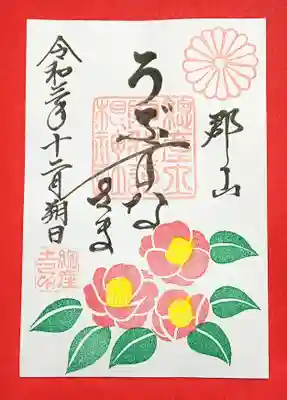 郡山
うぶすな
さま
令和三年十二月朔日